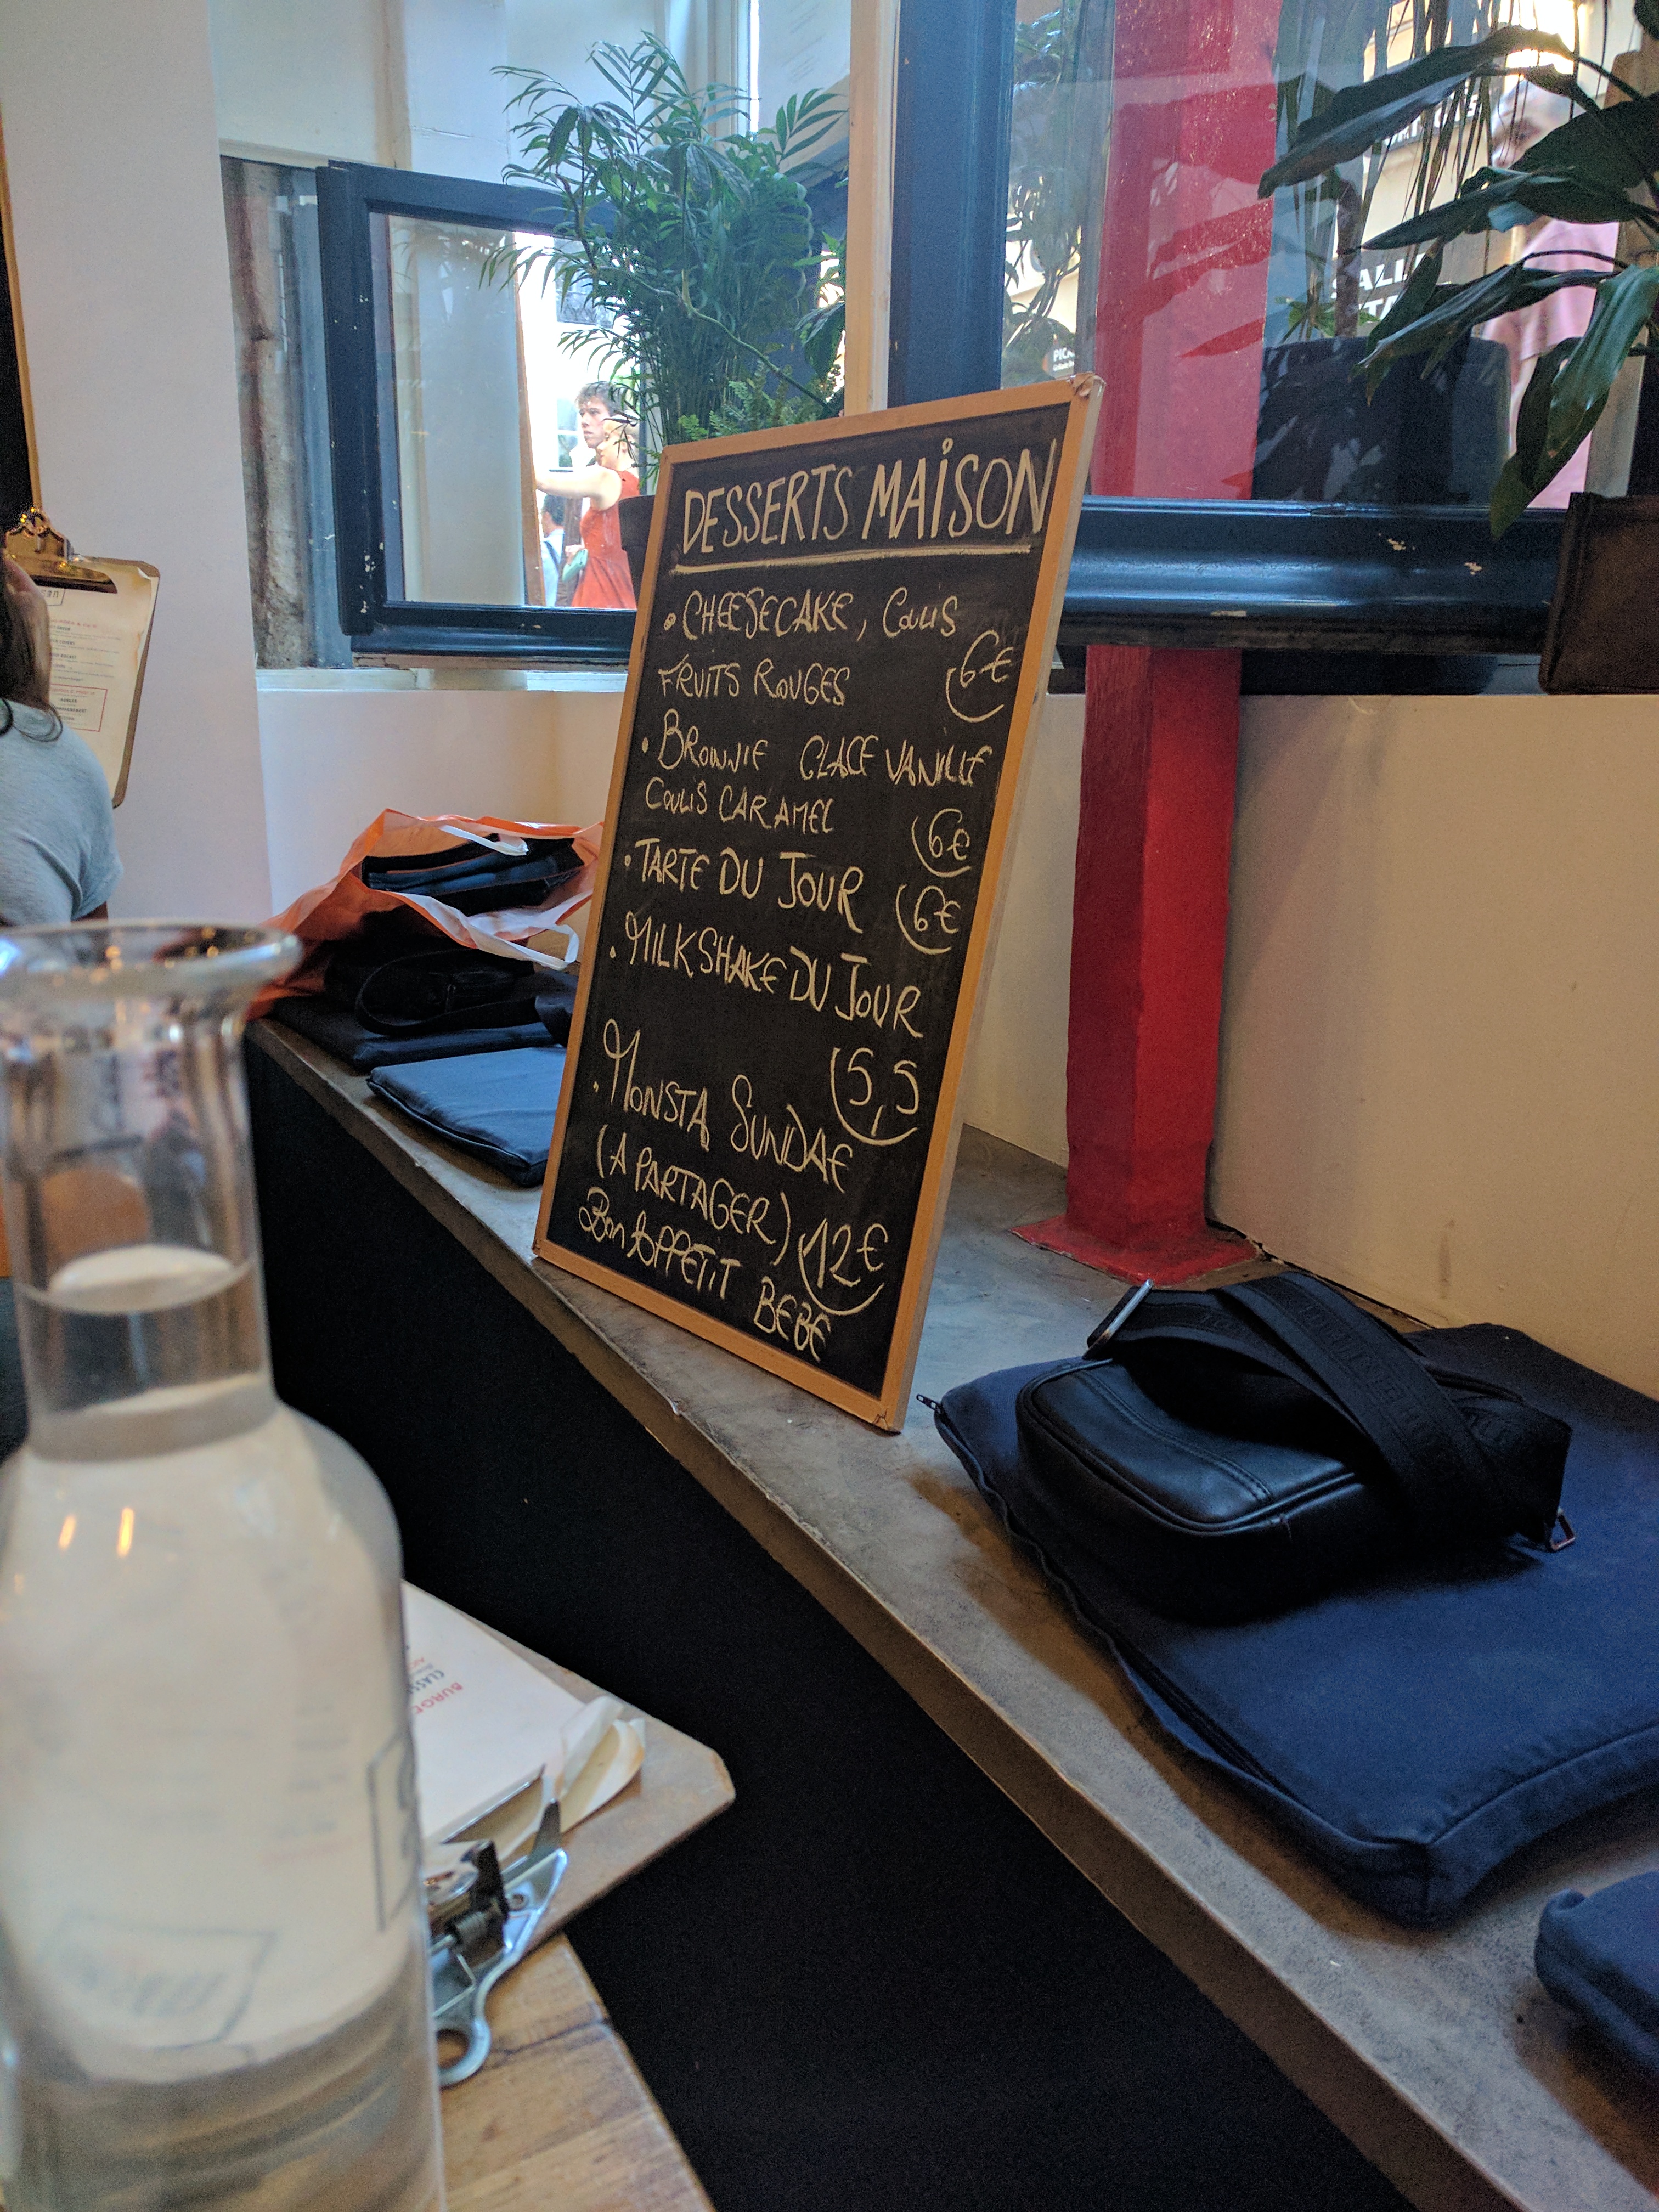 DESSERTS MAISON
• CHEESECAKE, COULIS
FRUITS ROUGES 6€
• BROWNIE GLACE VANILLE
COULIS CARAMEL 6€
• TARTE DU JOUR 6€
• MILKSHAKE DU JOUR
5,5
• MONSTA SUNDAE
(A PARTAGER) 12€
BON APPETIT BEBE